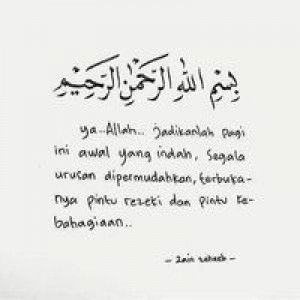 بِسْمِ اللهِ الرَّحْمٰنِ الرَّحِيْمِ
ya..Allah.. jadikanlah pagi
ini awal yang indah, segala
urusan dipermudahkan, terbuka-
nya pintu rezeki dan pintu ke-
bahagiaan..
- zain